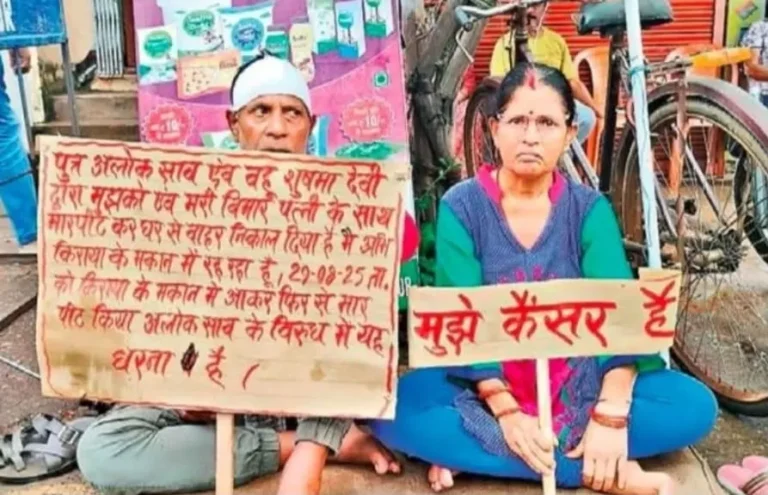 पुत्र अलोक साव एंव वहु शुषमा देवी
द्वारा मुझको एंव मेरी विमार पत्नी के साथ
मारपीट कर घर से वाहर निकाल दिया है मै अभि
किराया के मकान में रह रहा हूं, 29-08-25 ता.
को किराया के मकान मे आकर फिर से मार
पीट किया अलोक साव के विरुध मे यह
धरना है।
मुझे कैंसर है